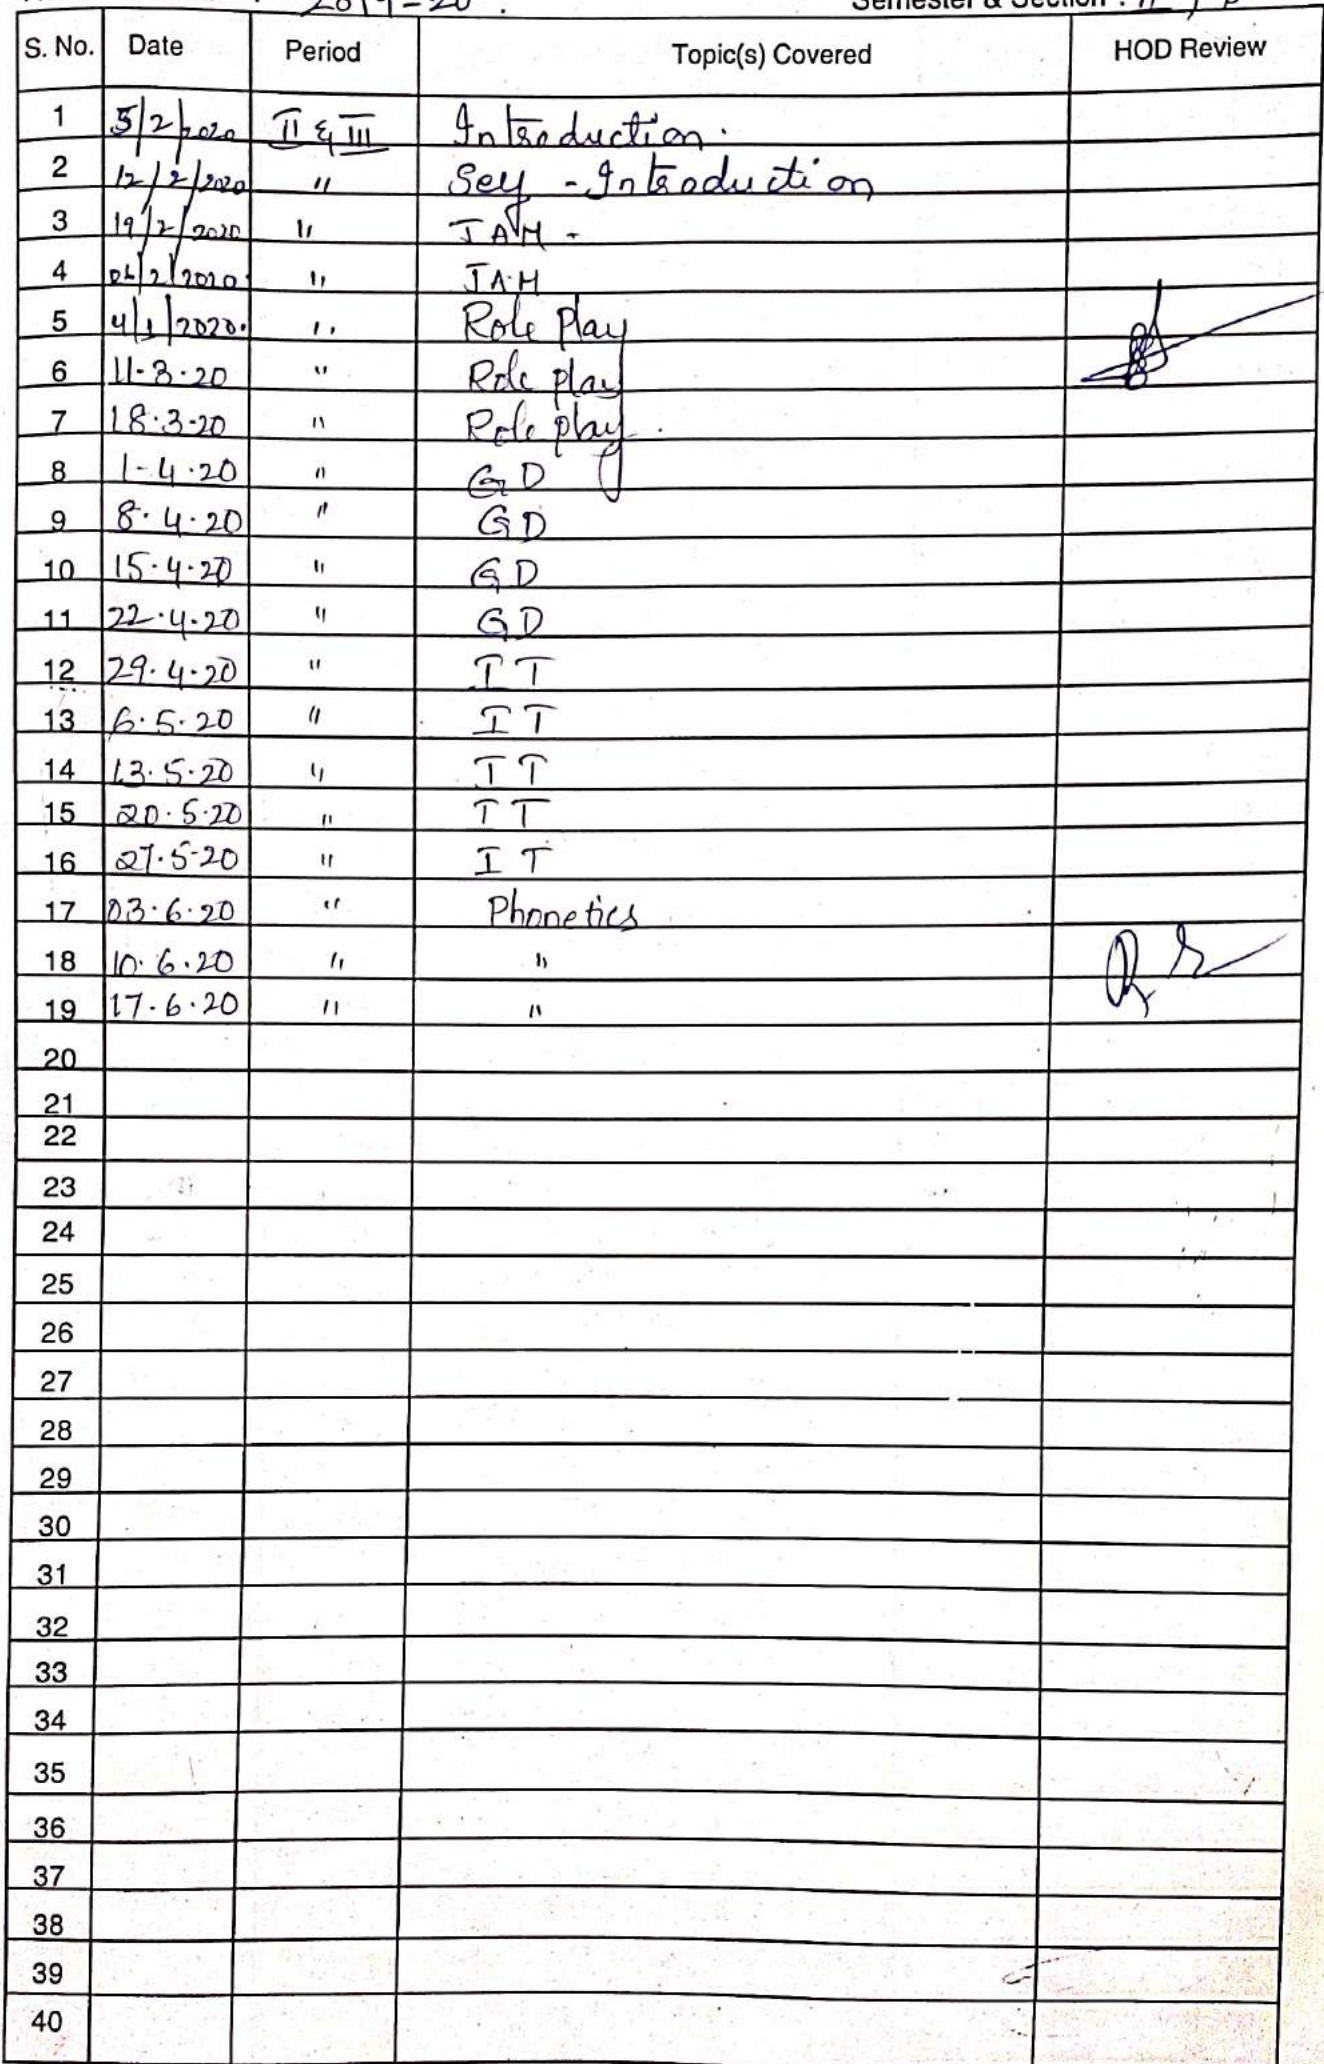 2019-20.
Semester & Section :
S. No. Date Period Topic(s) Covered HOD Review
1 5/2/2020 II & III Introduction.
2 12/2/2020 " Self - Introduction
3 19/2/2020 " JAM -
4 2/2020 " JAM
5 4/ /2020. " Role Play
6 11-3-20 " Role play
7 18.3-20 " Role play.
8 1-4.20 " GD
9 8.4.20 " GD
10 15.4.20 " GD
11 22.4.20 " GD
12 29.4.20 " IT
13 6.5.20 " IT
14 13.5.20 " IT
15 20.5.20 " IT
16 27.5-20 " IT
17 03.6.20 " Phonetics
18 10.6.20 " "
19 17.6.20 " "
20
21
22
23
24
25
26
27
28
29
30
31
32
33
34
35
36
37
38
39
40